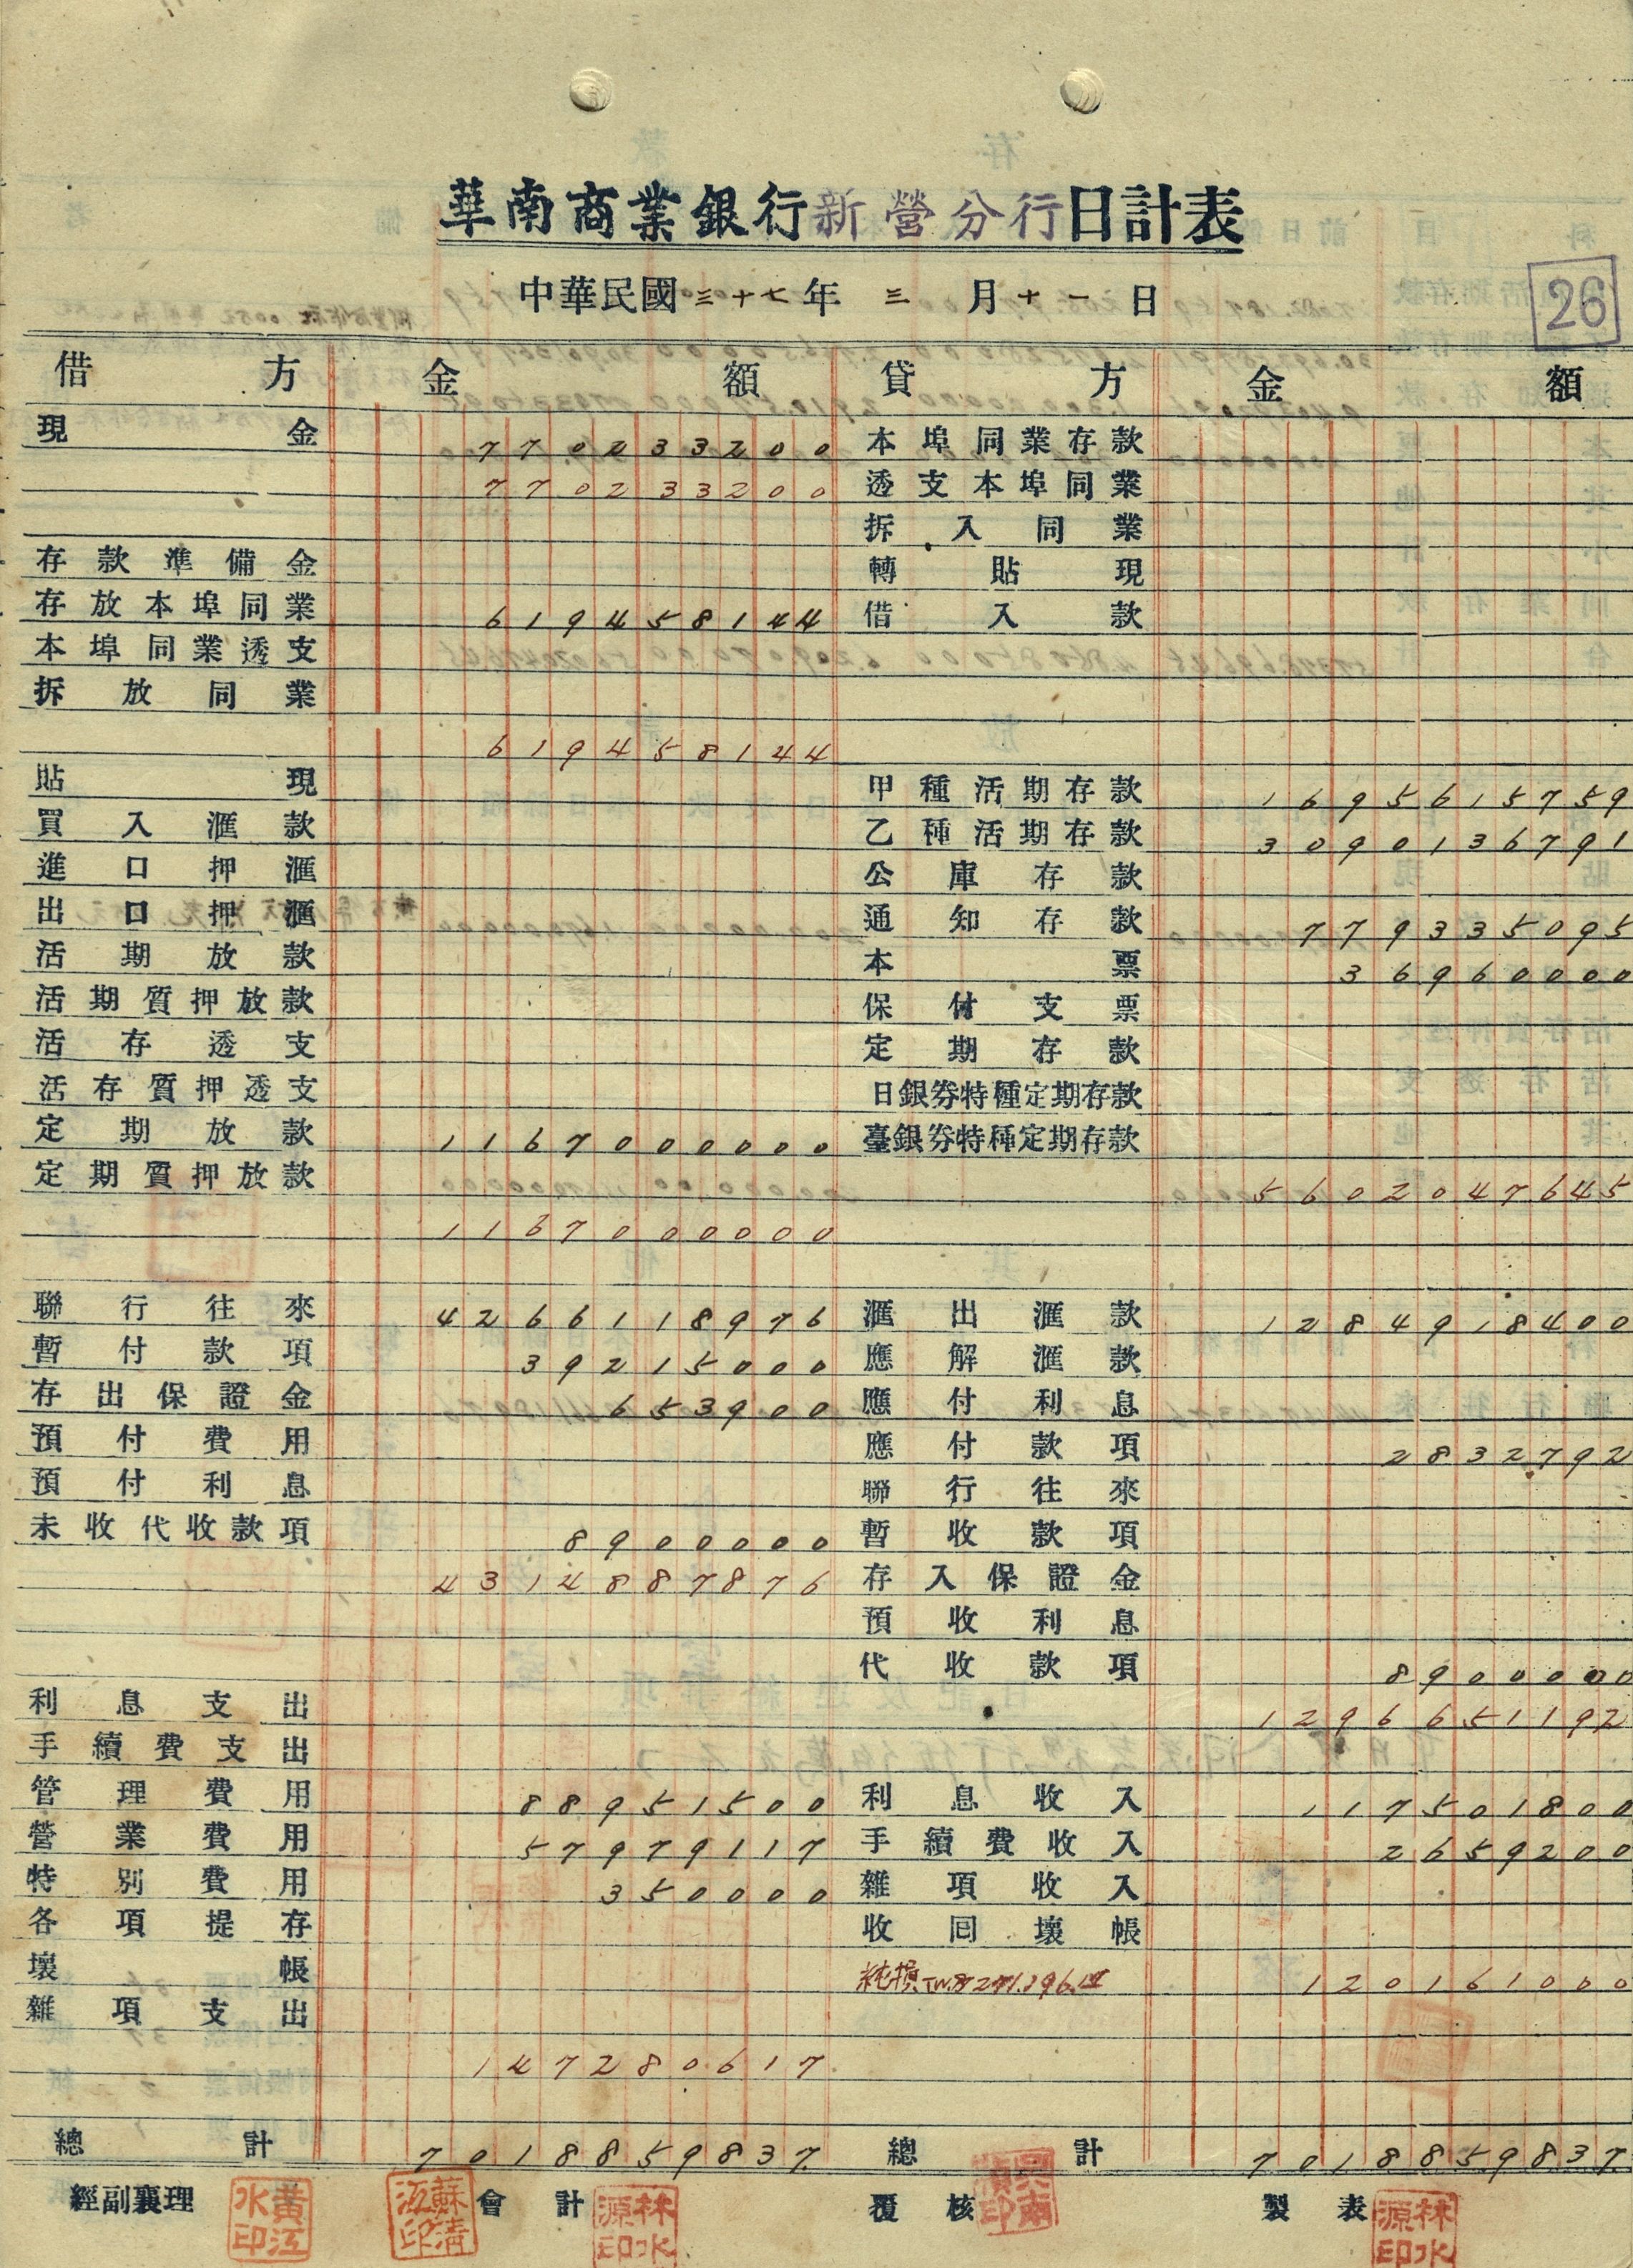 華南商業銀行新營分行日計表
中華民國三十七年 三 月十一日
26
借方 金額 貸方 金額
現金 770233200 本埠同業存款
770233200 透支本埠同業
拆入同業
存款準備金 轉貼現
存放本埠同業 619458144 借入款
本埠同業透支
拆放同業
619458144
貼現 甲種活期存款 1695615759
買入滙款 乙種活期存款 3090136791
進口押滙 公庫存款
出口押滙 通知存款 779335095
活期放款 本票 36960000
活期質押放款 保付支票
活存透支 定期存款
活存質押透支 日銀券特種定期存款
定期放款 1167000000 臺銀券特種定期存款
定期質押放款 5602047645
1167000000
聯行往來 4266118976 滙出滙款 1284918400
暫付款項 39215000 應解滙款
存出保證金 653900 應付利息
預付費用 應付款項 2832792
預付利息 聯行往來
未收代收款項 8900000 暫收款項
4314887876 存入保證金
預收利息
代收款項 8900000
利息支出 1296651192
手續費支出
管理費用 88951500 利息收入 117501800
營業費用 57979117 手續費收入 2659200
特別費用 350000 雜項收入
各項提存 收回壞帳
壞帳 純損 120161000
雜項支出
147280617
總計 7018859837. 總計 7018859837.
經副襄理 黃江水印 蘇清江印 會計 林水源印 覆核 製表 林水源印